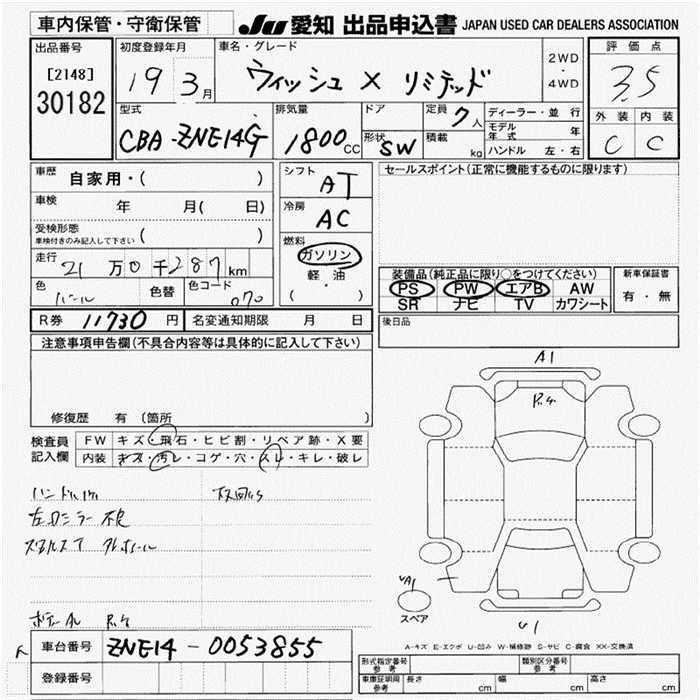 車内保管・守衛保管
JU 愛知 出品申込書 JAPAN USED CAR DEALERS ASSOCIATION
出品番号
[2148]
30182
初度登録年月
19 3月
車名・グレード
ウィッシュ X リミテッド
2WD
・
4WD
評価点
3.5
外装 内装
C C
型式
CBA-ZNE14G
排気量
1800CC
ドア
形状 SW
定員 7人
積載 kg
ディーラー・並行
モデル年式 年
ハンドル 左・右
車歴 自家用・( )
車検 年 月( 日)
受検形態
車検付きのみ記入して下さい ( )
走行 21万0千287km
色 パール 色替 色コード 070
シフト AT
冷房 AC
燃料
ガソリン
軽・油
( ・ )
セールスポイント(正常に機能するものに限ります)
装備品(純正品に限り○をつけてください)
PS PW エアB AW
SR ナビ TV カワシート
新車保証書
有・無
R券 11730円 名変通知期限 月 日
後日品
注意事項申告欄(不具合内容等は具体的に記入して下さい)
修復歴 有 (箇所 )
検査員記入欄
FW キズ・飛石・ヒビ割・リペア跡・X要
内装 キズ・汚レ・コゲ・穴・スレ・キレ・破レ
左ロミラー不良
A1
UA1
スペア
U1
A-キズ E-エクボ U-凹み W-補修跡 S-サビ C-腐食 XX-交換済
車台番号 ZNE14-0053855
登録番号
形式指定番号 参考
類別区分番号 参考
車庫証明用 参考 長さ cm 幅 cm 高さ cm